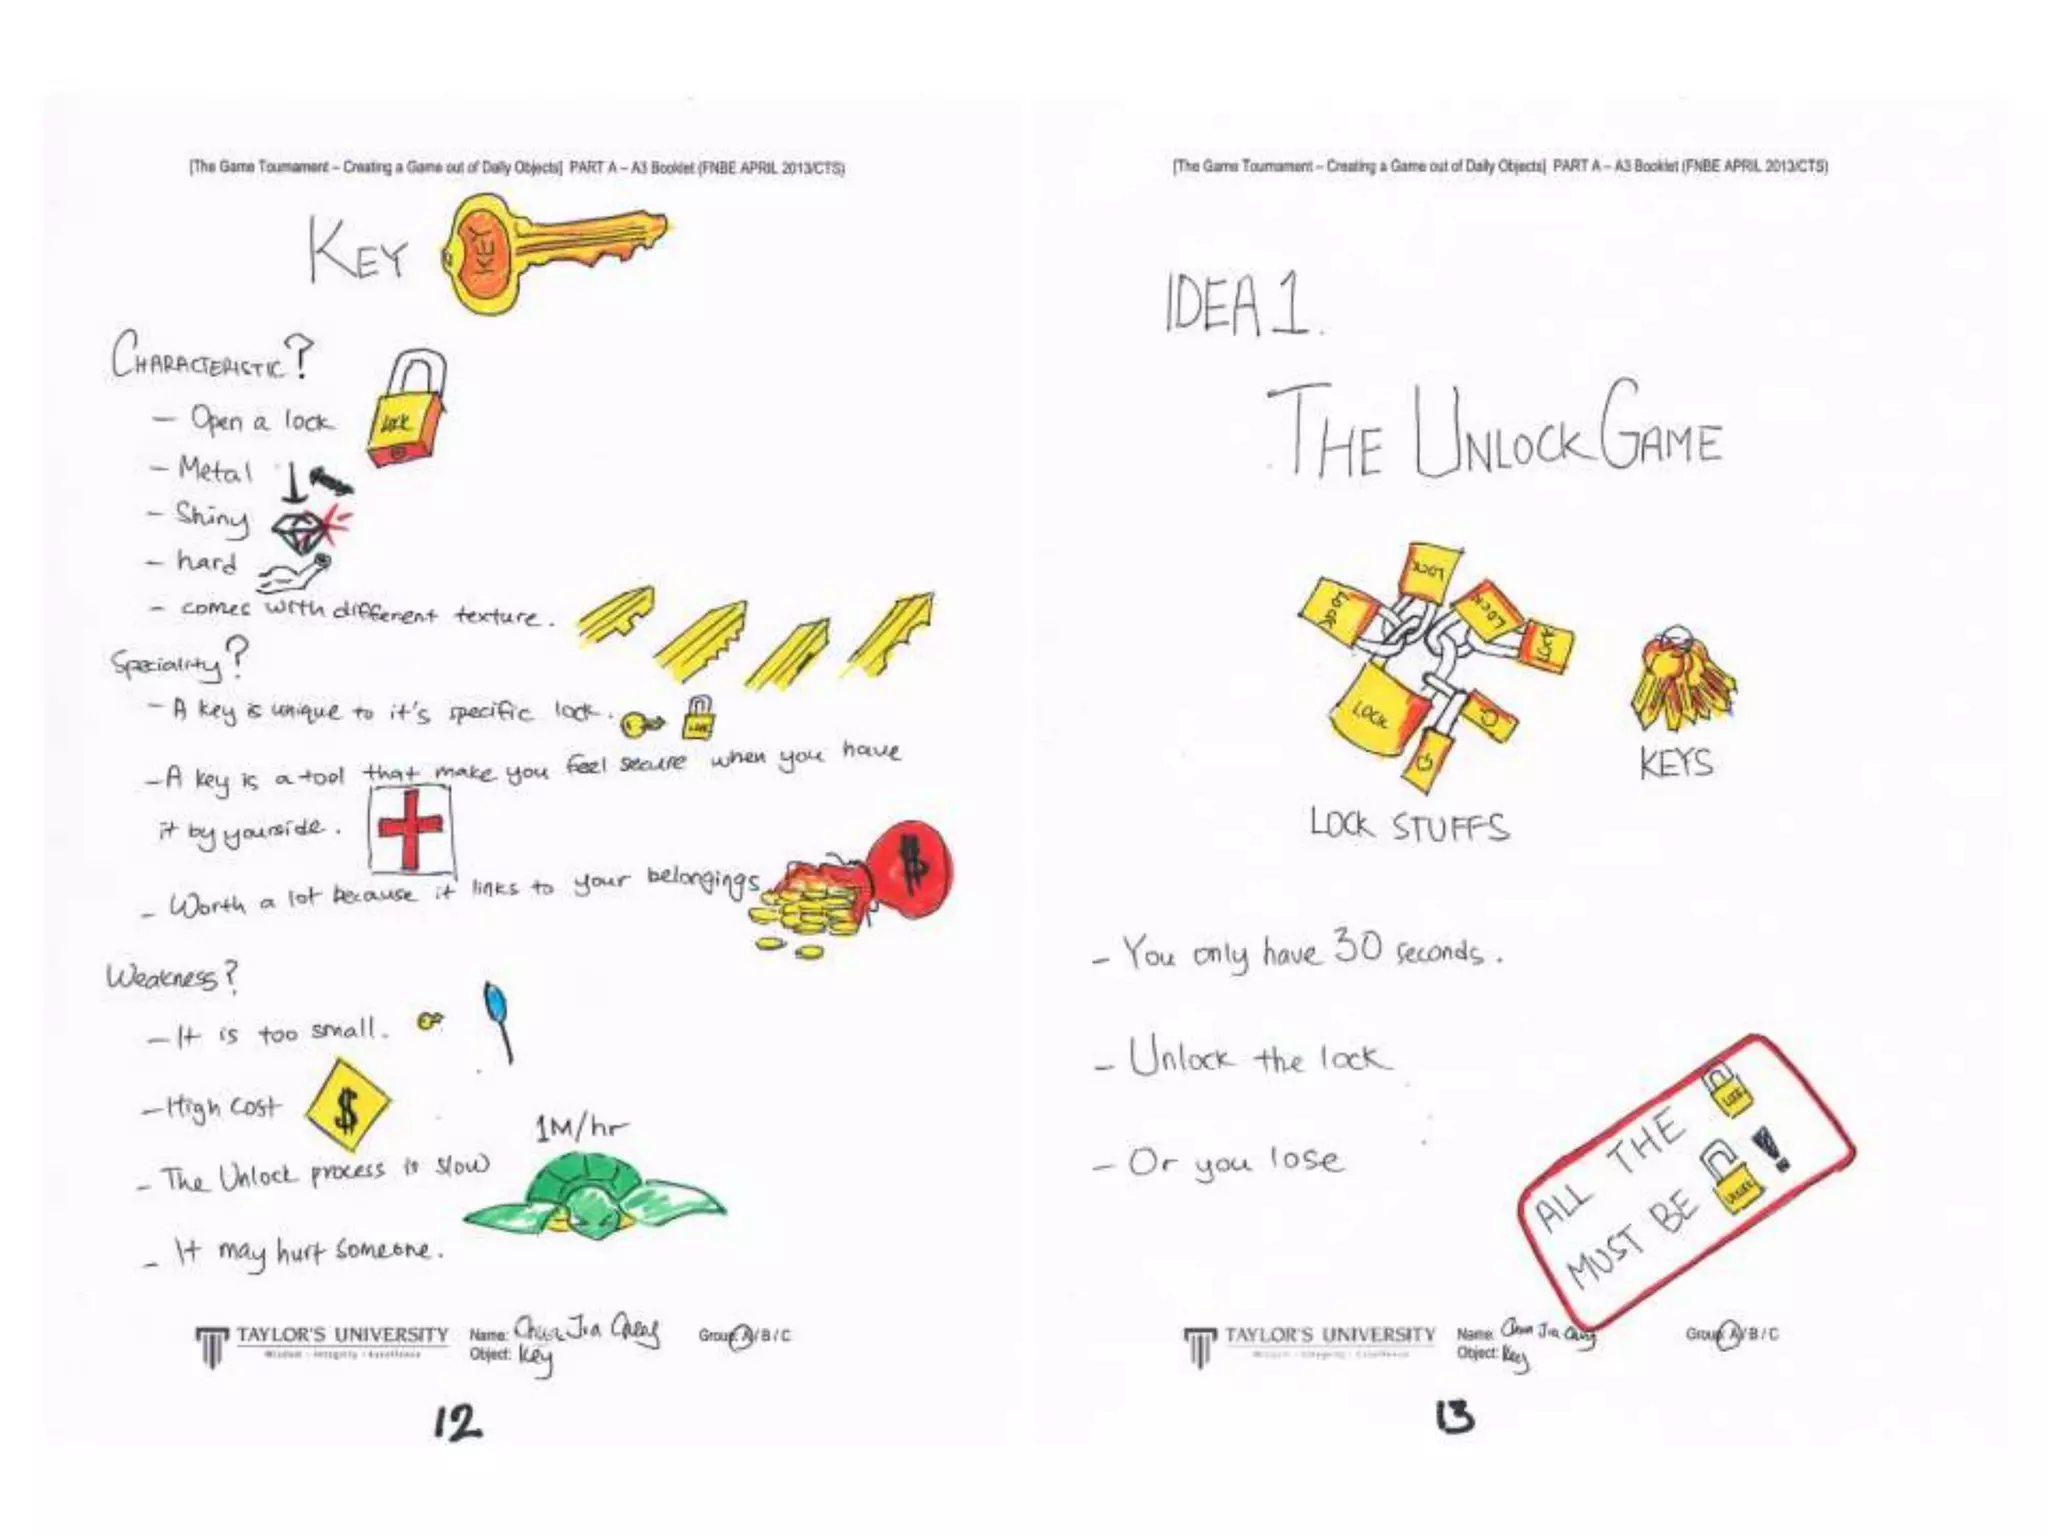 [The Game Tournament – Creating a Game out of Daily Objects] PART A – A3 Booklet (FNBE APRIL 2013/CTS)
KEY
KEY
CHARACTERISTIC?
– Open a lock
LOCK
– Metal
– Shiny
– hard
– comes with different texture.
Speciality?
– A key is unique to it's specific lock.
LOCK
– A key is a tool that make you feel secure when you have
it by yourside.
– Worth a lot because it links to your belongings
$
Weakness?
– It is too small.
– High cost
$
1M/hr
– The Unlock process is slow
– It may hurt someone.
TAYLOR'S UNIVERSITY
Wisdom · Integrity · Excellence
Name: Chua Jia Cheng
Object: Key
Group: A / B / C
12
[The Game Tournament – Creating a Game out of Daily Objects] PART A – A3 Booklet (FNBE APRIL 2013/CTS)
IDEA 1.
THE UNLOCK GAME
LOCK
LOCK
LOCK
LOCK
LOCK
LOCK STUFFS
KEYS
– You only have 30 seconds.
– Unlock the lock
– Or you lose
ALL THE
LOCK
MUST BE
UNLOCK
!
TAYLOR'S UNIVERSITY
Wisdom · Integrity · Excellence
Name: Chua Jia Cheng
Object: Key
Group: A / B / C
13